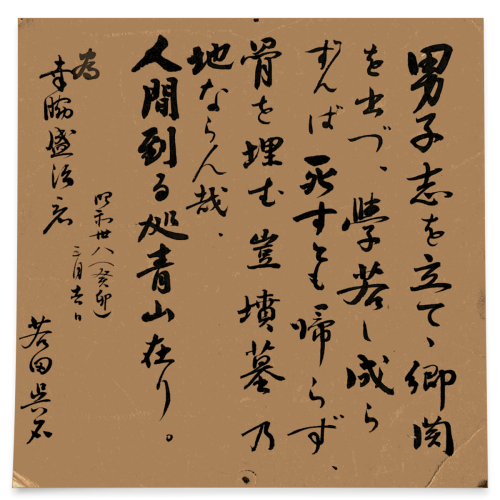 男子志を立て、郷関
を出づ、学若し成ら
ずんば死すとも帰らず、
骨を埋む豈墳墓乃
地ならん哉、
人間到る処青山在り。
昭和卅八(癸卯)
三月吉日
為
幸脇盛治君
若田呉石